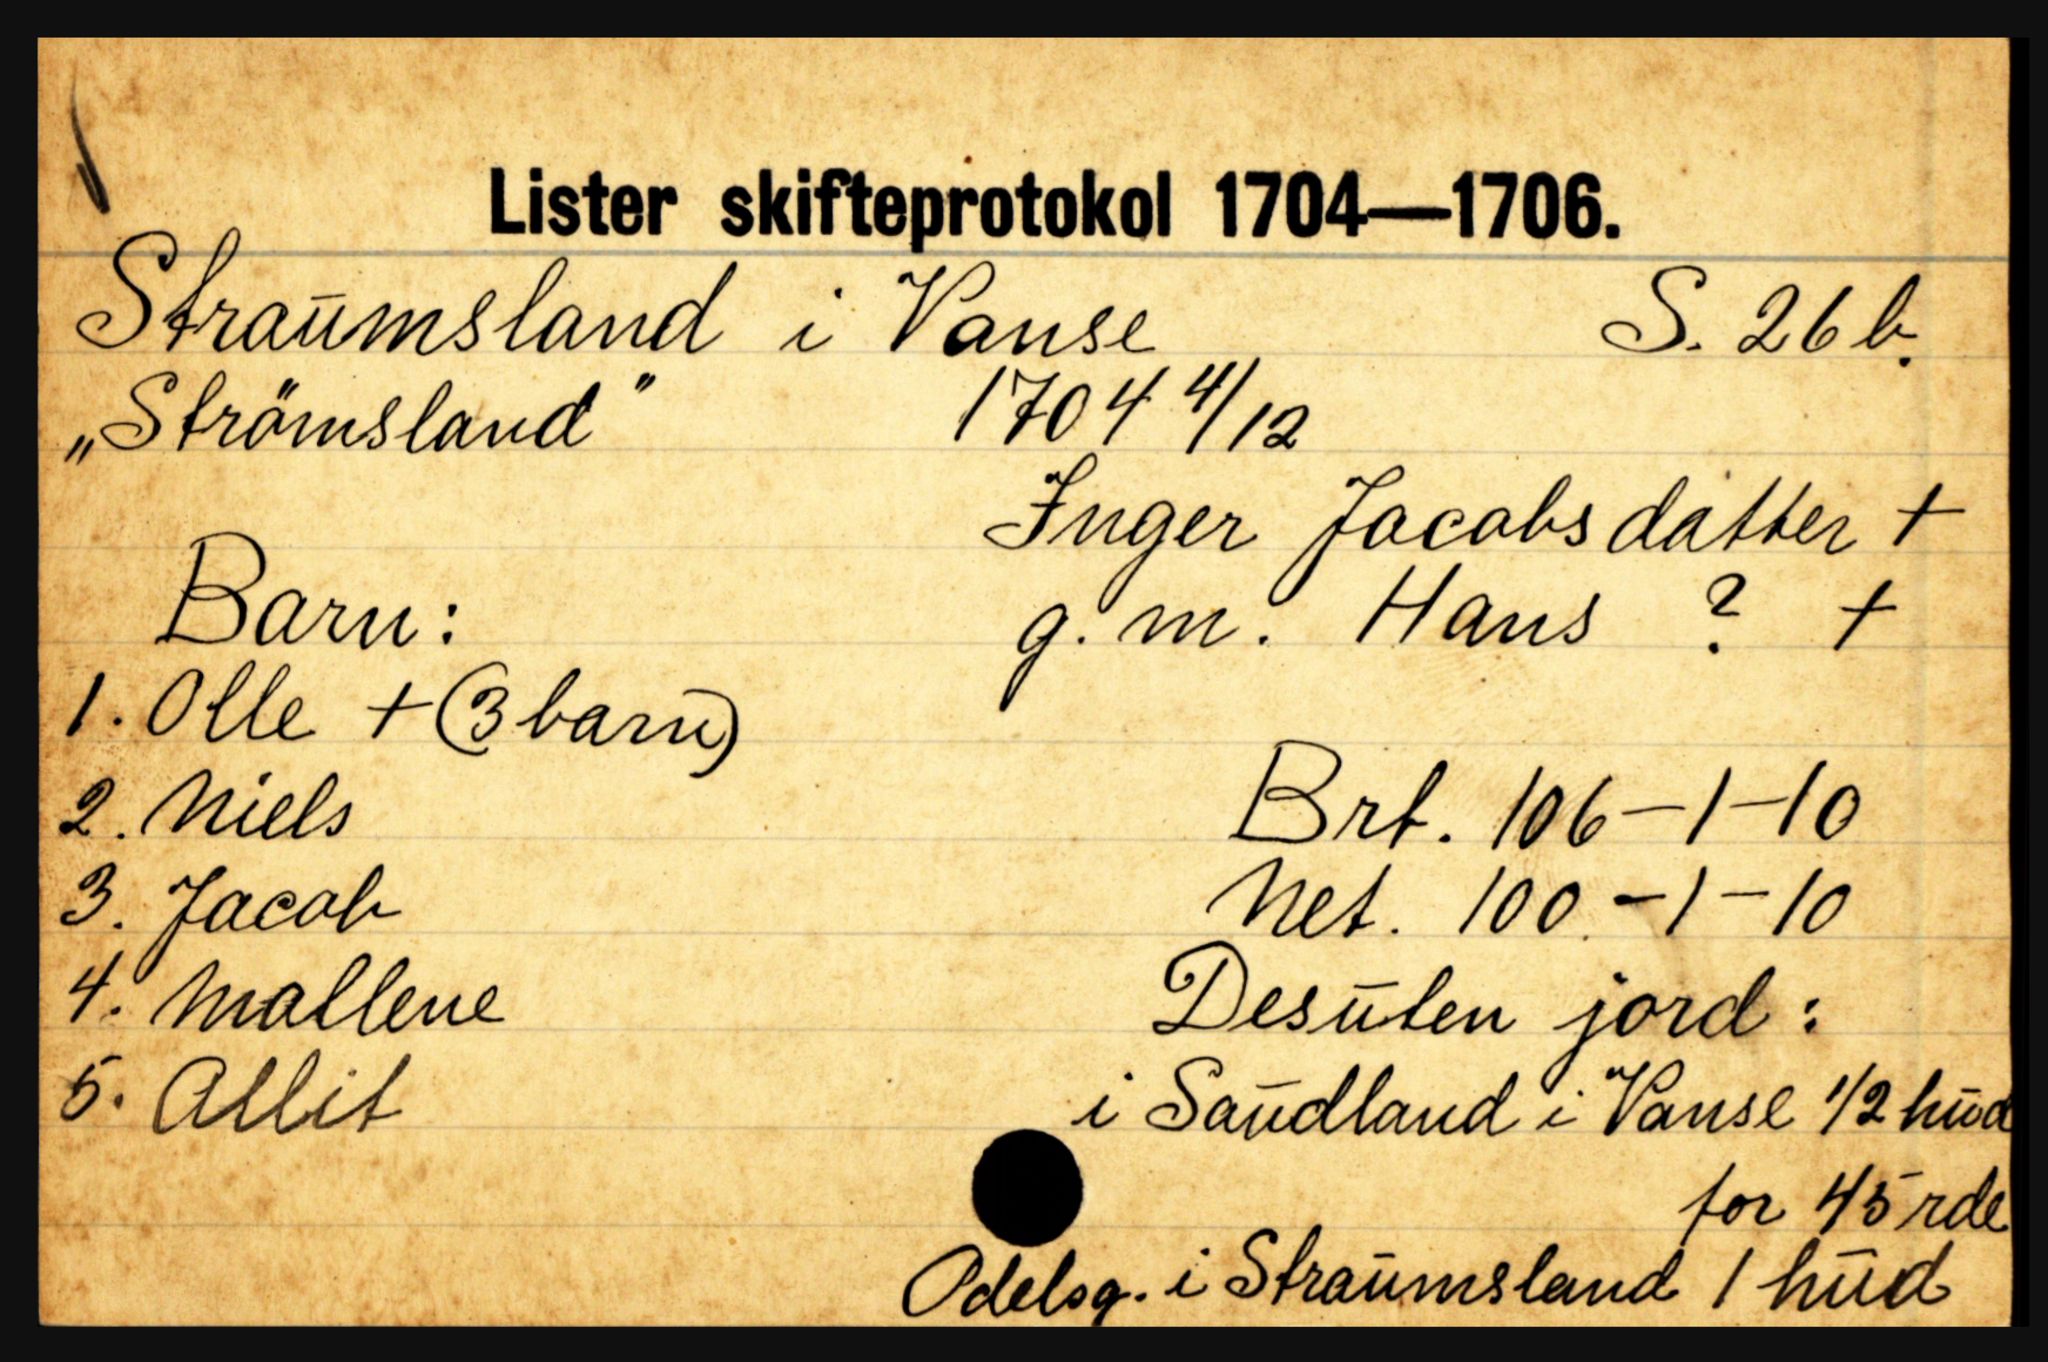 Lister skifteprotokol 1704—1706.
Straumsland i Vanse S. 26 b.
„Strömsland" 1704 4/12
Inger Jacobsdatter +
Barn: g. m. Hans ? +
1. Olle + (3 barn)
2. Niels Brt. 106-1-10
3. Jacob Net. 100-1-10
4. Mallene Desuten jord:
5. Allit i Saudland i Vanse 1/2 hud
for 45 rde
Odelsg. i Straumsland 1 hud